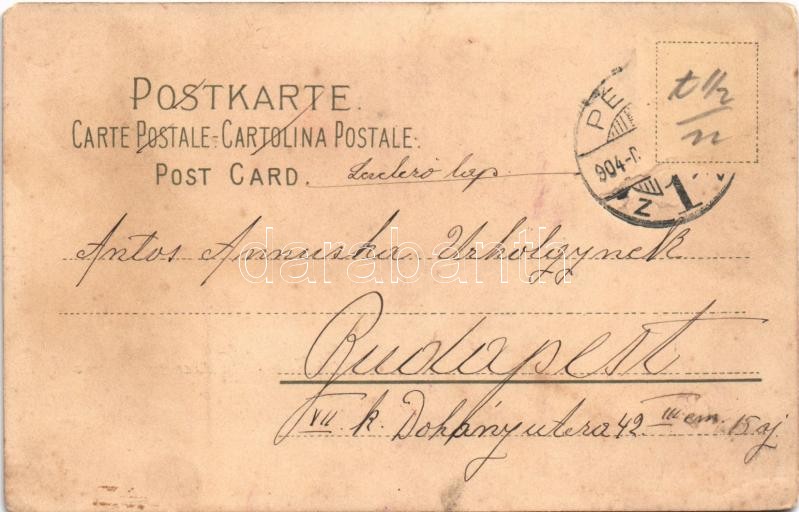 POSTKARTE.
CARTE POSTALE-CARTOLINA POSTALE.
POST CARD.
Levelező lap
PE
904-
Z
1
Antos Annuska Urhölgynek
Budapest
VII k. Dohányutcza 42 III em. 15 aj.
darabanth